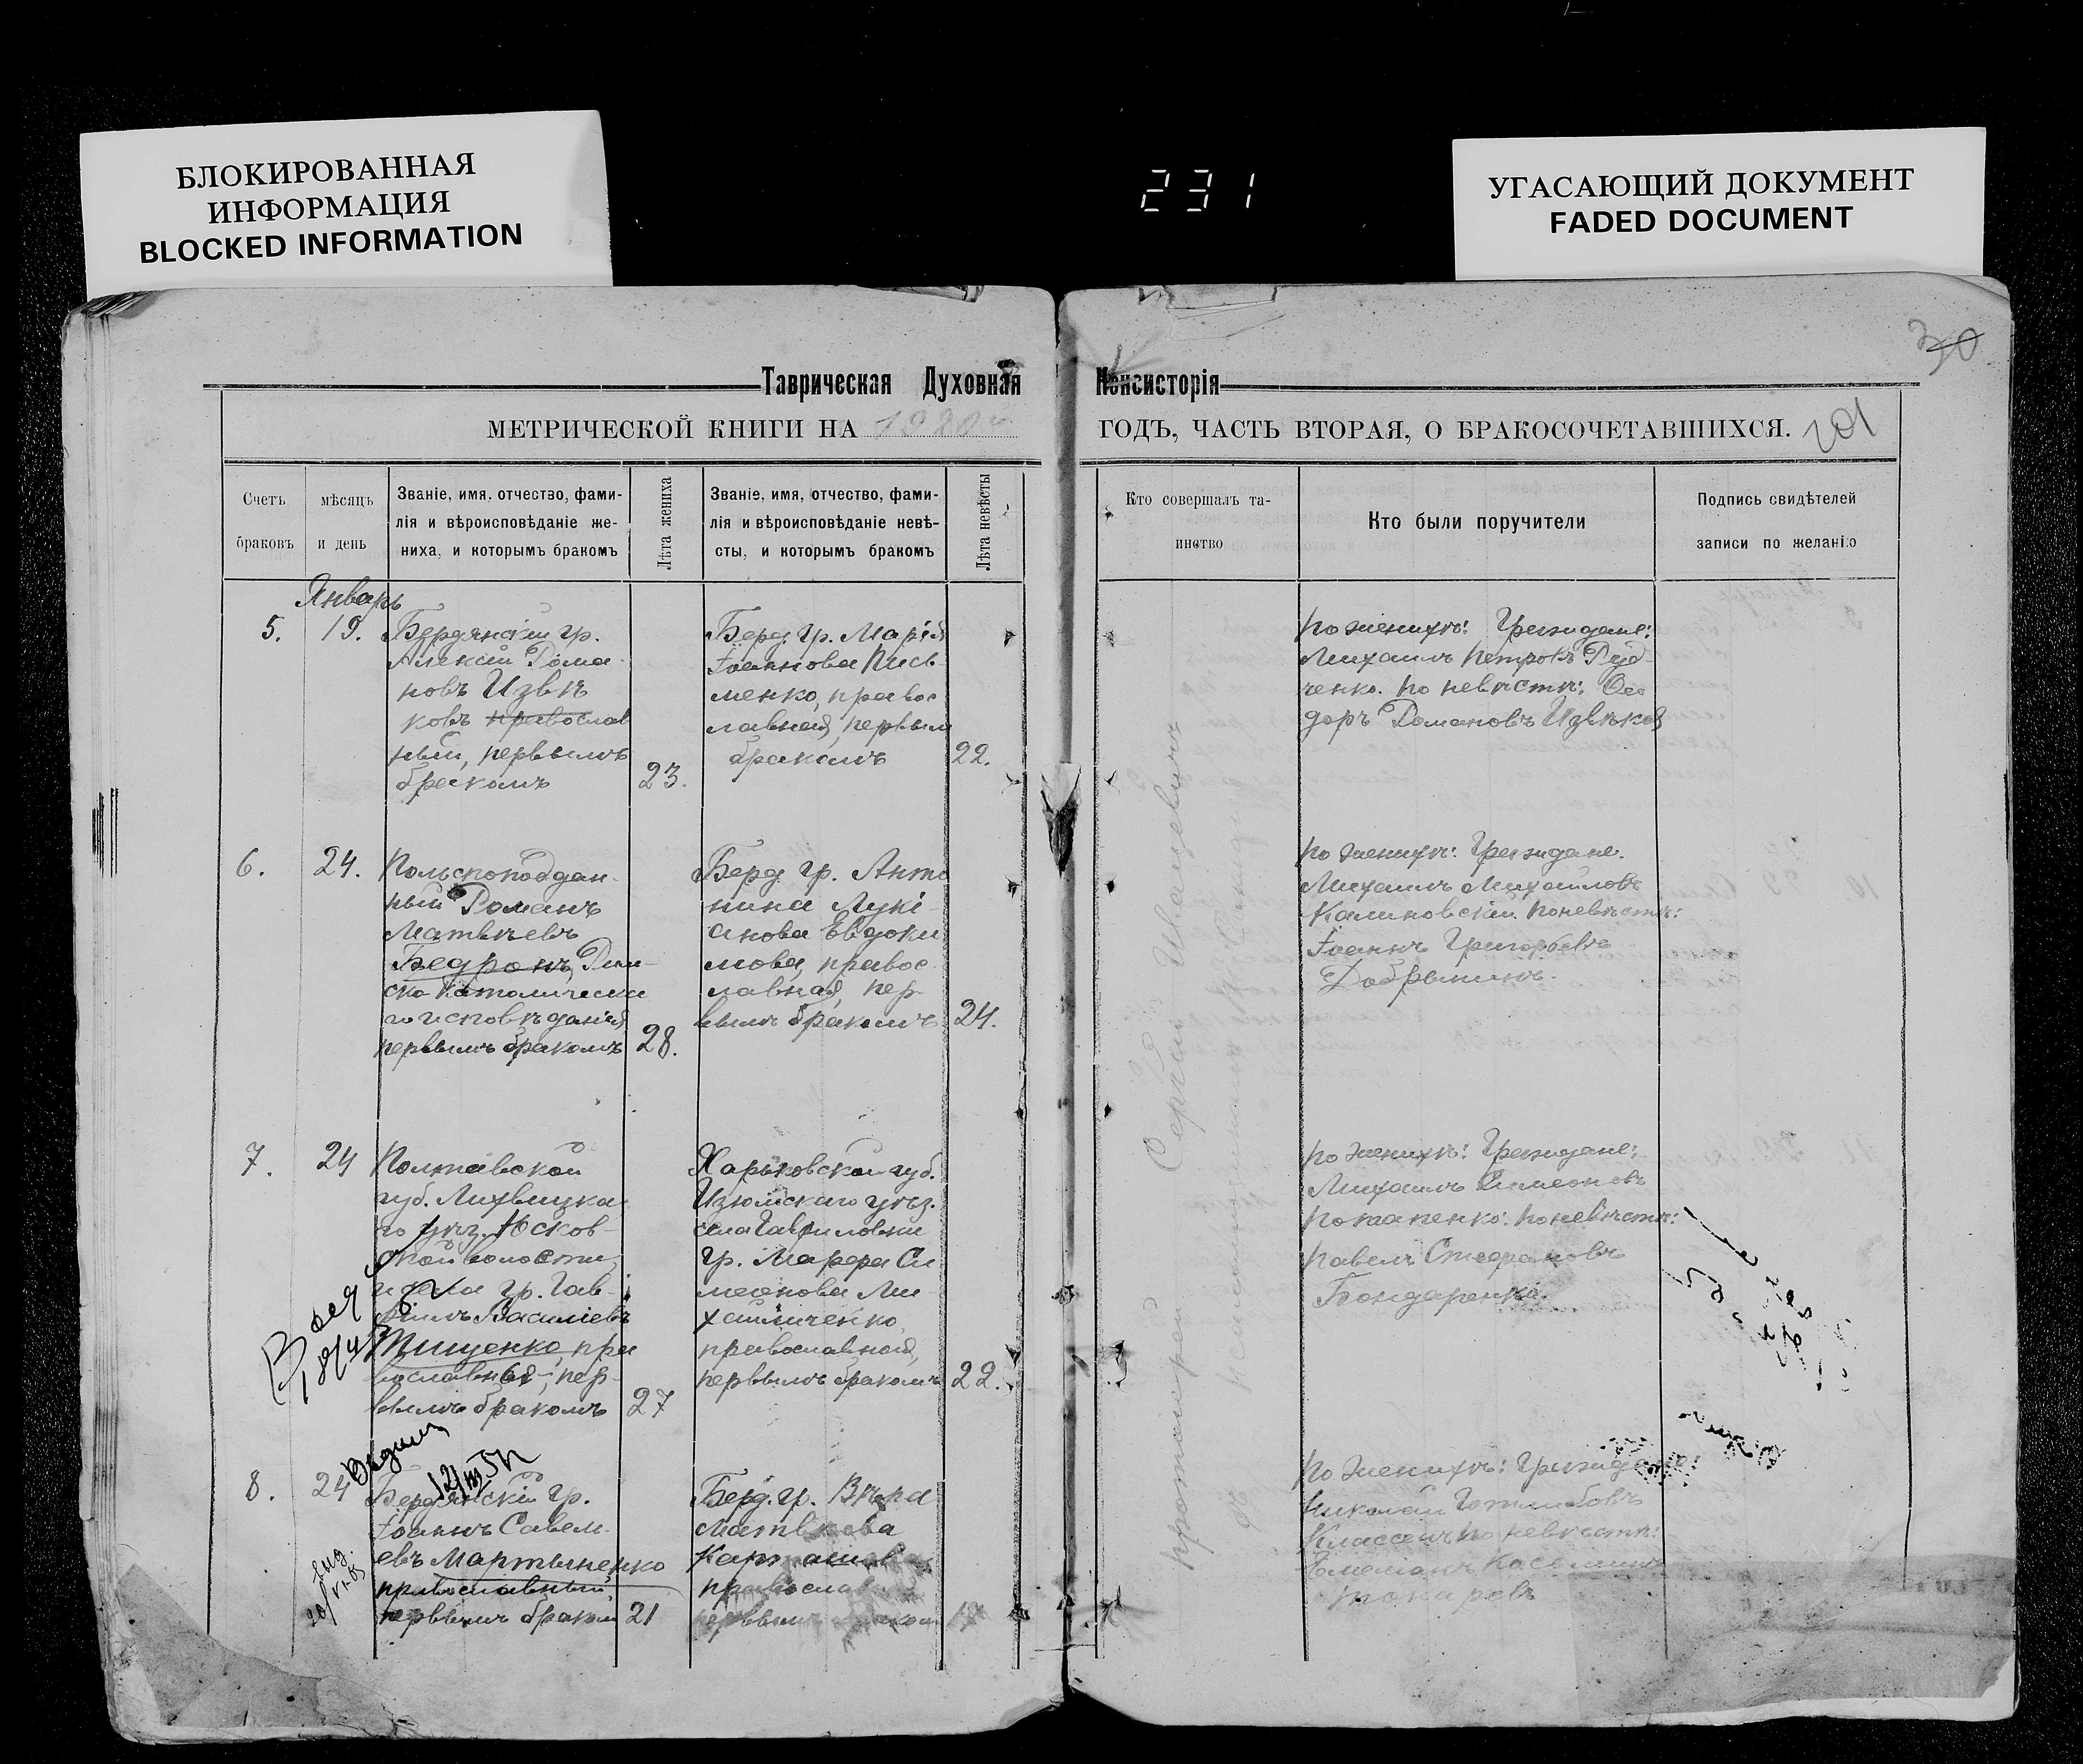 БЛОКИРОВАННАЯ
ИНФОРМАЦИЯ
BLOCKED INFORMATION
231
УГАСАЮЩИЙ ДОКУМЕНТ
FADED DOCUMENT
30
Таврическая Духовная Консисторія
МЕТРИЧЕСКОЙ КНИГИ НА 1920 г. ГОДЪ, ЧАСТЬ ВТОРАЯ, О БРАКОСОЧЕТАВШИХСЯ. 201
Счетъ
браковъ
мѣсяцъ
и день
Званіе, имя, отчество, фами-
лія и вѣроисповѣданіе же-
ниха, и которымъ бракомъ
Лѣта жениха
Званіе, имя, отчество, фами-
лія и вѣроисповѣданіе невѣ-
сты, и которымъ бракомъ
Лѣта невѣсты
Кто совершалъ та-
инство
Кто были поручители
Подпись свидѣтелей
записи по желанію
Январь
5.
19.
Бердянскій гр.
Алексій Рома-
новъ Извѣ
ковъ православ
ный, первымъ
бракомъ
23.
Берд. гр. Марія
Іоаннова Пись-
менко, правос
лавная, первым
бракомъ
22.
по женихѣ: Граждане:
Михаилъ Петровъ Руд-
ченко. по невѣстѣ: Ѳео
доръ Романовъ Извѣков
6.
24.
Польскоподдан-
ный Романъ
Матвѣевъ
Бедронъ, Рим-
ско католическа
го исповѣданія
первымъ бракомъ
28.
Берд. гр. Анто
нина Лукі-
анова Евдоки
мова, правос-
лавная, пер-
вымъ бракомъ
24.
по женихѣ: Граждане.
Михаилъ Михайловъ
Калиновскій. По невѣстѣ:
Іоаннъ Григорьевъ
Добрынинъ.
7.
24
Полтавской
губ. Лихвицка
го уѣз.
волости,
гр. Гав-
Василіевъ
Тищенко, пра
вославный, пер-
вымъ бракомъ
27
Харьковской губ.
Изюмскаго уѣз.
села Гавриловки
гр. Марфа Си
меонова Ми-
хайличенко,
православная,
первымъ бракомъ
22.
по женихѣ: Граждане:
Михаилъ Симеоновъ
Потапенко. По невѣстѣ:
Павелъ Стефановъ
Бондаренко.
8.
24
Бердянскій гр.
Іоаннъ Савель-
евъ Мартыненко
православный
первымъ браком
21
Берд. гр. Вѣра
Матвѣева
православ
первымъ браком
17
по женихѣ: Граждане:
Николай Готлибовъ
Классенъ по невѣстѣ:
Емеліанъ
Токаревъ
протоіерей Сергій Иващевичъ